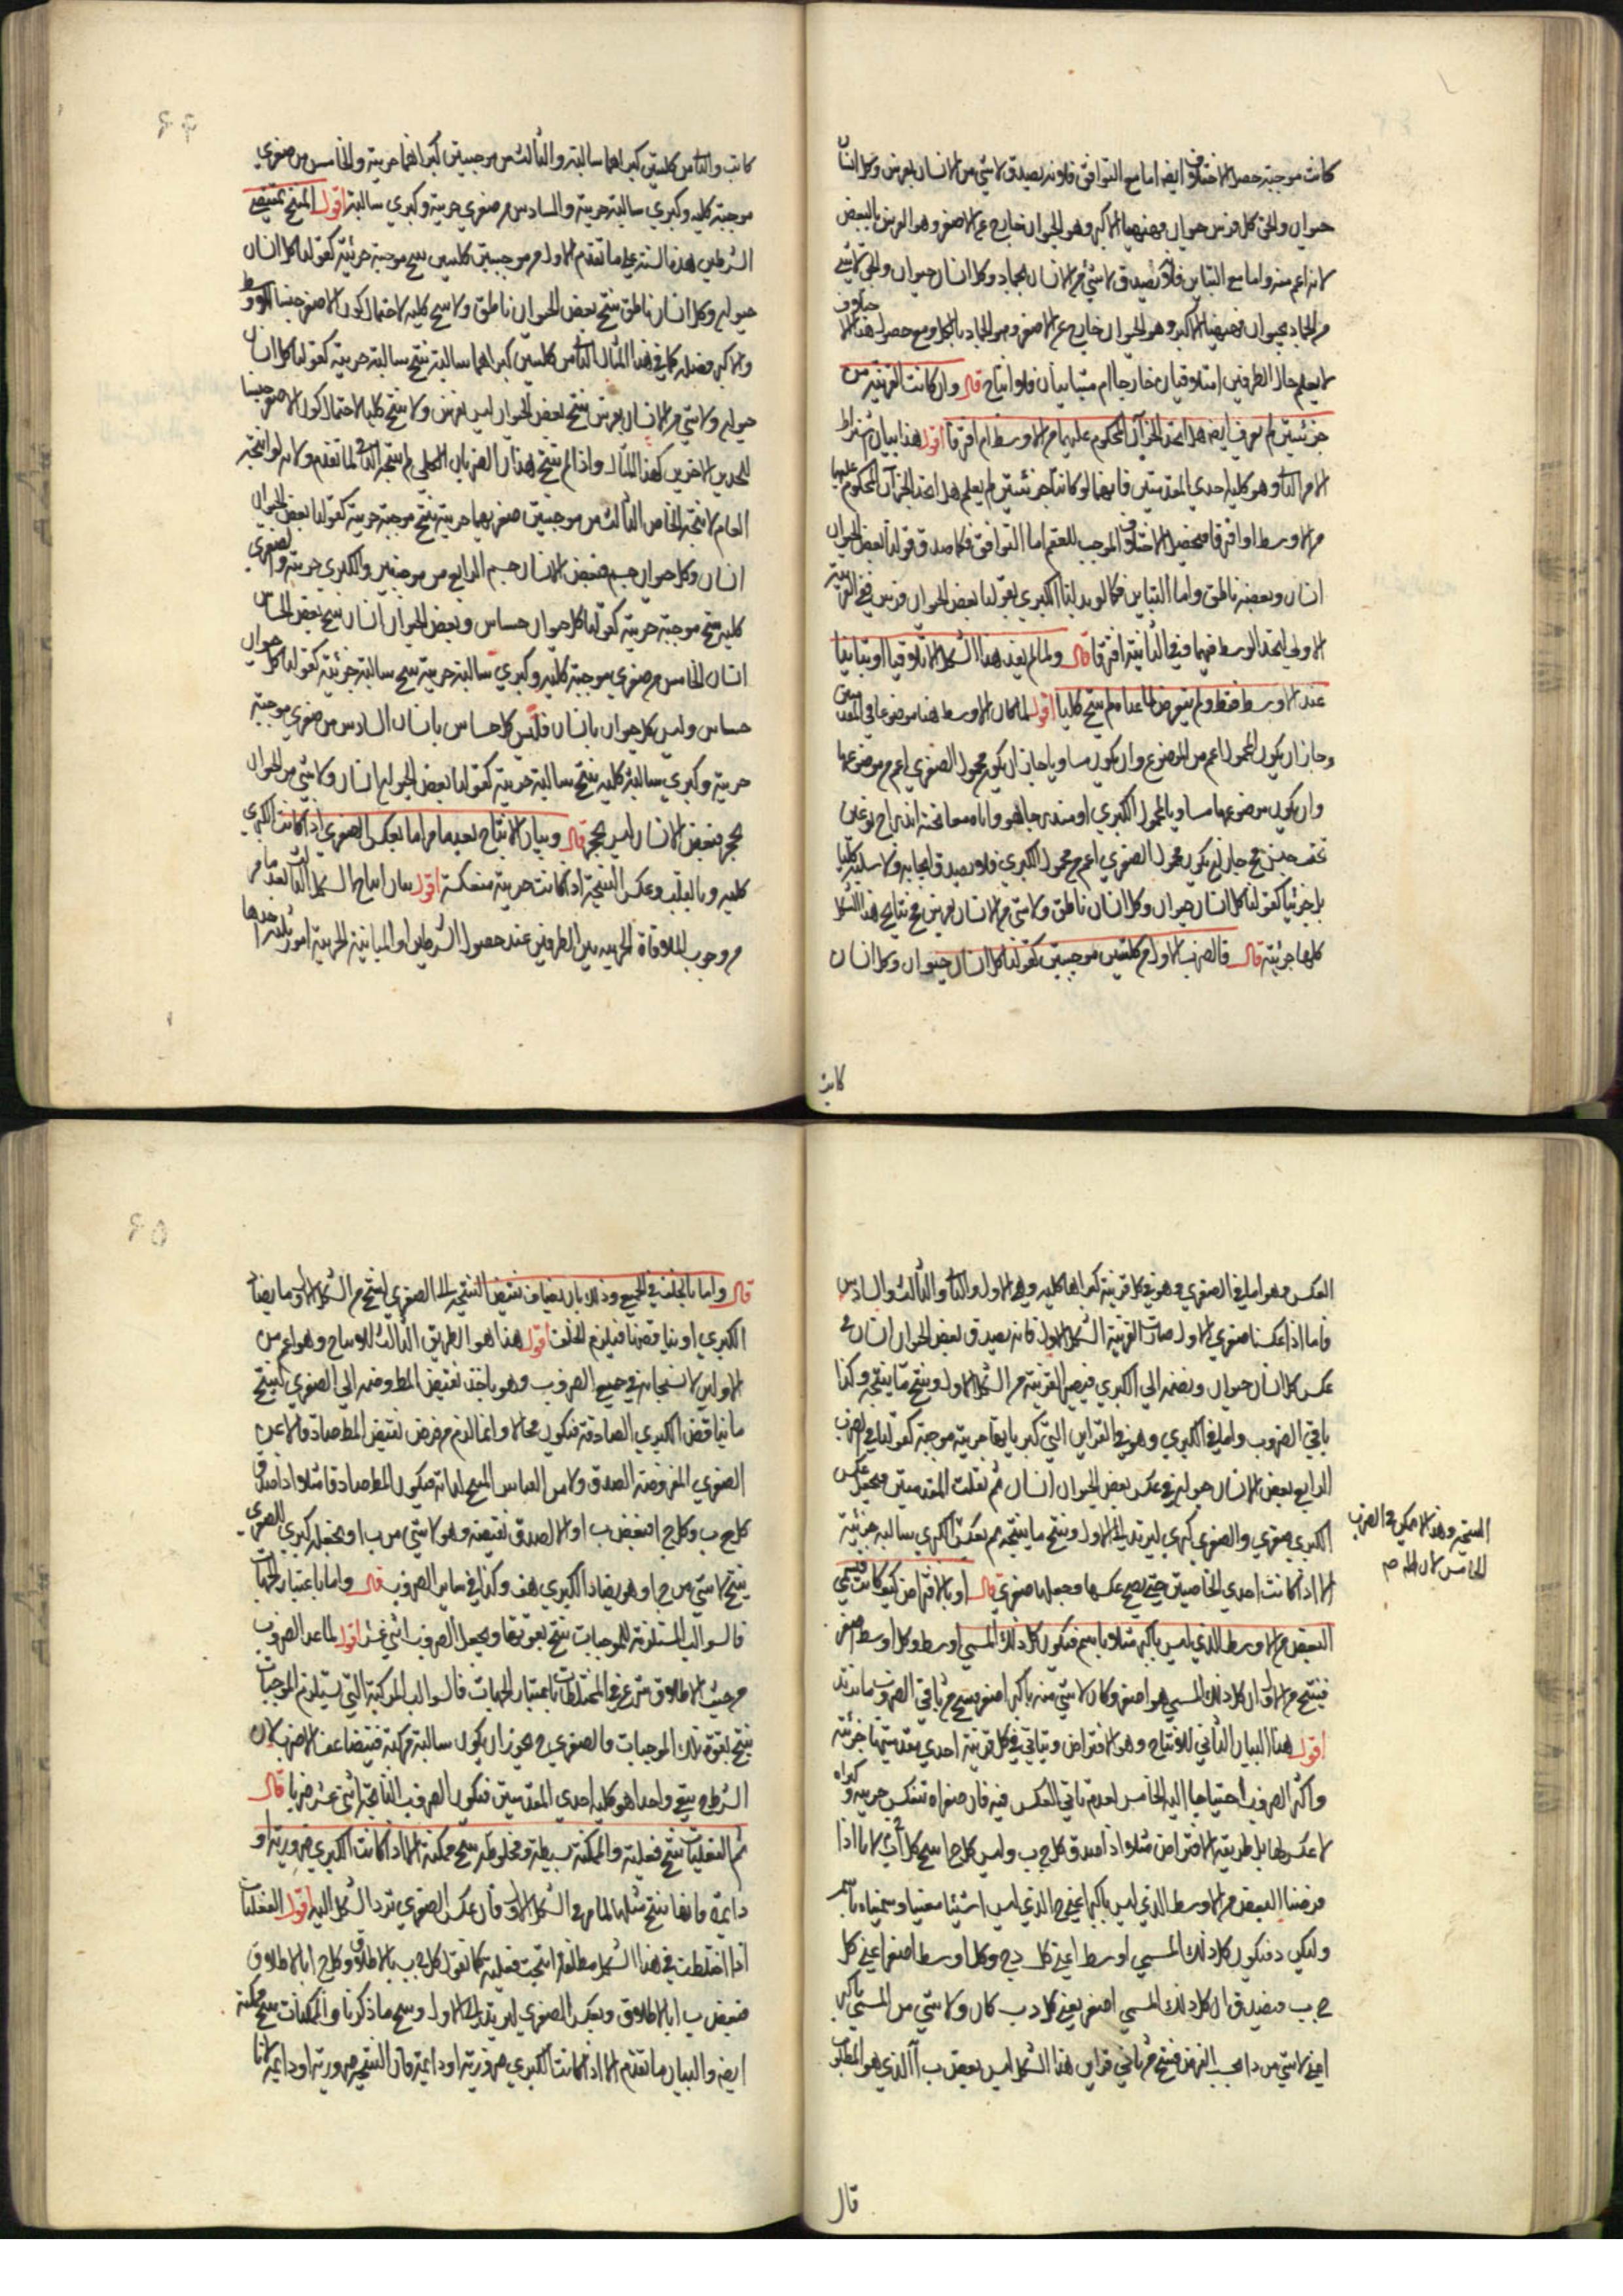 كانت موجبة حصل الاختلاف ايضا اما مع التوافق فلانه يصدق لا شي من الانسان بفرس وكل انسان
حيوان والحق كل فرس حيوان فههنا الاكبر وهو الحيوان خارج عن الاصغر وهو الفرس بالبعض
لانه اعم منه واما مع التباين فلانه يصدق لا شي من الانسان بجماد وكل انسان حيوان والحق لا شي
من الجماد بحيوان فههنا الاكبر وهو الحيوان خارج عن الاصغر وهو الجماد بالكل ومع حصول هذا الاختلاف
لا يعلم حال الطرفين امتلاقيان خارجا ام متباينان فلا انتاج قال وان كانت القرينة من
جزئيتين لم يعرف ايضا هل اتحد الجزآن المحكوم عليهما من الاوسط ام افترقا اقول هذا بيان اشتراط
الامر الثاني وهو كلية احدي المقدمتين فانهما لو كانتا جزئيتين لم يعلم هل اتحد الجزآن المحكوم عليهما
من الاوسط او افترقا فيحصل الاختلاف الموجب للعقم اما التوافق فكما صدق قولنا بعض الحيوان
انسان وبعضه ناطق واما التباين فكما لو بدلنا الكبري بقولنا بعض الحيوان فرس ففي القرينة
الاولي اتحد الوسط فيهما وفي الثانية افترقا قال ولما لم يفد هذا الشكل الا تلاقيا او تباينا
عند الاوسط فقط ولم يتعرض لما عداه لم ينتج كليا اقول لما كان الاوسط هنا موضوعا في المقدمتين
وجاز ان يكون المحمول اعم من الموضوع وان يكون مساويا جاز ان يكون محمول الصغري اعم من موضوعها
وان يكون موضوعها مساويا لمحمول الكبري او مندرجا هو واياه معا تحته اندراج نوعين
تحت جنس فح جاز ان يكون محمول الصغري اعم من محمول الكبري فلا يصدق ايجابه ولا سلبه كليا
بل جزئيا كقولنا كل انسان حيوان وكل انسان ناطق ولا شي من الانسان بفرس فح نتايج هذا الشكل
كلها جزئية قال فالضرب الاول من كليتين موجبتين كقولنا كل انسان حيوان وكل انسان
كاتب
٤٤
كاتب والثاني من كليتين كبراهما سالبة والثالث من موجبتين كبراهما جزيية والخامس من صغري
موجبة كلية وكبري سالبة جزيية والسادس من صغري جزيية وكبري سالبة اقول المنتج بمقتضي
الشرطين هذه الستة علي ما تقدم الاول من موجبتين كليتين ينتج موجبة جزئية كقولنا كل انسان
حيوان وكل انسان ناطق ينتج بعض الحيوان ناطق ولا ينتج كلية لاحتمال كون الاصغر جنسا للاوسط
والاكبر فصله كما في هذا المثال الثاني من كليتين كبراهما سالبة ينتج سالبة جزيية كقولنا كل انسان
حيوان ولا شي من الانسان بفرس ينتج بعض الحيوان ليس بفرس ولا ينتج كليا لاحتمال كون الاصغر جنسا
للحدين الاخرين كهذا المثال واذا لم ينتج هذان الضربان الكلي لم ينتجه الثاني لما تقدم ولانه لو انتجه
العام لانتجه الخاص الثالث من موجبتين صغريهما جزيية ينتج موجبة جزيية كقولنا بعض الحيوان
انسان وكل حيوان جسم فبعض الانسان جسم الرابع من موجبتين والكبري جزيية والصغري
كلية ينتج موجبة جزيية كقولنا كل حيوان حساس وبعض الحيوان انسان ينتج بعض الحساس
انسان الخامس من صغري موجبة كلية وكبري سالبة جزيية ينتج سالبة جزئية كقولنا كل حيوان
حساس وليس كل حيوان بانسان فليس كل حساس بانسان السادس من صغري موجبة
جزيية وكبري سالبة كلية ينتج سالبة جزيية كقولنا بعض الحيوان انسان ولا شي من الحيوان
بحجر فبعض الانسان ليس بحجر قال وبيان الانتاج لغيرهما من اما بعكس الصغري اذا كانت الكبري
كلية وبالقلب وعكس النتيجة اذا كانت جزيية منعكسة اقول بيان انتاج الشكل الثالث بعد ما مر
من وجوب الملاقاة الجزيية بين الطرفين عند حصول الشرطين او المباينة الجزيية امور ثلثة احدها
العكس وهو اما في الصغري وهو في كل قرينة كبراها كلية وهي الاول والثاني والثالث والسادس
فاما اذا عكسنا صغري الاول صارت القرينة الشكل الاول فانه يصدق بعض الحيوان انسان في
عكس كل انسان حيوان ونضمه الي الكبري فيصير القرينة من الشكل الاول وينتج ما ينتجه وكذا
باقي الضروب واما في الكبري وهو في القراين التي كبرياتها جزيية موجبة كقولنا في الضرب
الرابع بعض الانسان حيوان في عكس بعض الحيوان انسان ثم نقلب المقدمتين ونجعل عكس
الكبري صغري والصغري كبري ليرتد الي الاول وينتج ما ينتجه ثم بعكس الكبري سالبة جزئية
الا اذا كانت احدي الخاصيتين حتي يصح عكسها وجعلها صغري قال او بالافتراض كيف كانت فيسمي
البعض من الاوسط الذي ليس باكبر مثلا باسم فيكون كل ذلك المسمي اوسط وكل اوسط اصغر
فينتج من الاول ان كل ذلك المسمي هو اصغر وكان لا شي منه باكبر اصغر ينتج من باقي الضروب ما نريد
اقول هذا البيان الثاني للانتاج وهو الافتراض ويتاتي في كل قرينة احدي مقدمتيها جزئية
واكثر الضروب احتياجا اليه الخامس لعدم تاتي العكس فيه فان صغراه تنعكس جزيية وكبراه
لا عكس لها بل طريقه الافتراض مثلا اذا صدق كل ج ب وليس كل ج ا ينتج
فرضنا البعض من الاوسط الذي ليس باكبر اعني ج الذي ليس ا شيئا معينا وسميناه باسم
وليكن د فيكون كل ذلك المسمي اوسط اعني كل د ج وكل اوسط اصغر اعني كل
ج ب فيصدق ان كل ذلك المسمي اصغر يعني كل د ب وكان ولا شي من المسمي باكبر
اعني لا شي من د ا بحسب الفرض فينتج من ثاني قراين هذا الشكل ليس بعض ب ا الذي هو المطلوب
النتيجة وهذا لا يمكن في الضرب
الخامس لان
قال
٤٥
قال واما بالخلف في الجميع وذلك بان يضاف نقيض النتيجة الي الصغري لينتج من الشكل الاول ما يضاد
الكبري او يناقضها فيلزم الخلف اقول هذا هو الطريق الثالث للانتاج وهو اعم من
الاولين لانسحابه في جميع الضروب وهو ياخذ نقيض المط وضمه الي الصغري لينتج
ما يناقض الكبري الصادقة فيكون محالا وانما لزم من فرض نقيض المط صادقا لا عن
الصغري المفروضة الصدق ولا من القياس المنتج لذاته فيكون المط صادقا مثلا اذا صدق
كل ج ب وكل ج ا فبعض ب ا والا لصدق نقيضه وهو لا شي من ب ا ونجعله كبري الصغري
ينتج لا شي من ج ا وهو يضاد الكبري هف وكذا في ساير الضروب قال واما باعتبار الجهات
فالسوالب المستلزمة للموجبات ينتج بقوتها ويجعل الضروب اثني عشر اقول لما عد الضروب
من حيث الاطلاق شرع في المختلطات باعتبار الجهات فالسوالب المركبة التي تستلزم الموجبات
ينتج بقوة تلك الموجبات والصغري ح يجوز ان يكون سالبة مركبة فيتضاعف الاضرب لان
الشرط ح يبقي واحدا هو كلية احدي المقدمتين فيكون الضروب الناتجة اثني عشر ضربا قال
ثم الفعليات ينتج فعلية والممكنة بسيطة ومخلوطة ينتج ممكنة الا اذا كانت الكبري ضرورية او
دايمة فانها ينتج مثلها لما مر في الشكل الاول فان عكس الصغري ترد الشكل اليه اقول الفعليات
اذا اختلطت في هذا الشكل مطلقا انتجت فعلية كما نقول كل ج ب بالاطلاق وكل ج ا بالاطلاق
فبعض ب ا بالاطلاق وبعكس الصغري ليرتد الي الاول وينتج ما ذكرنا والممكنات ينتج ممكنة
ايضا والبيان ما تقدم الا اذا كانت الكبري ضرورية او دايمة فان النتيجة ضرورية او دايمة لانا